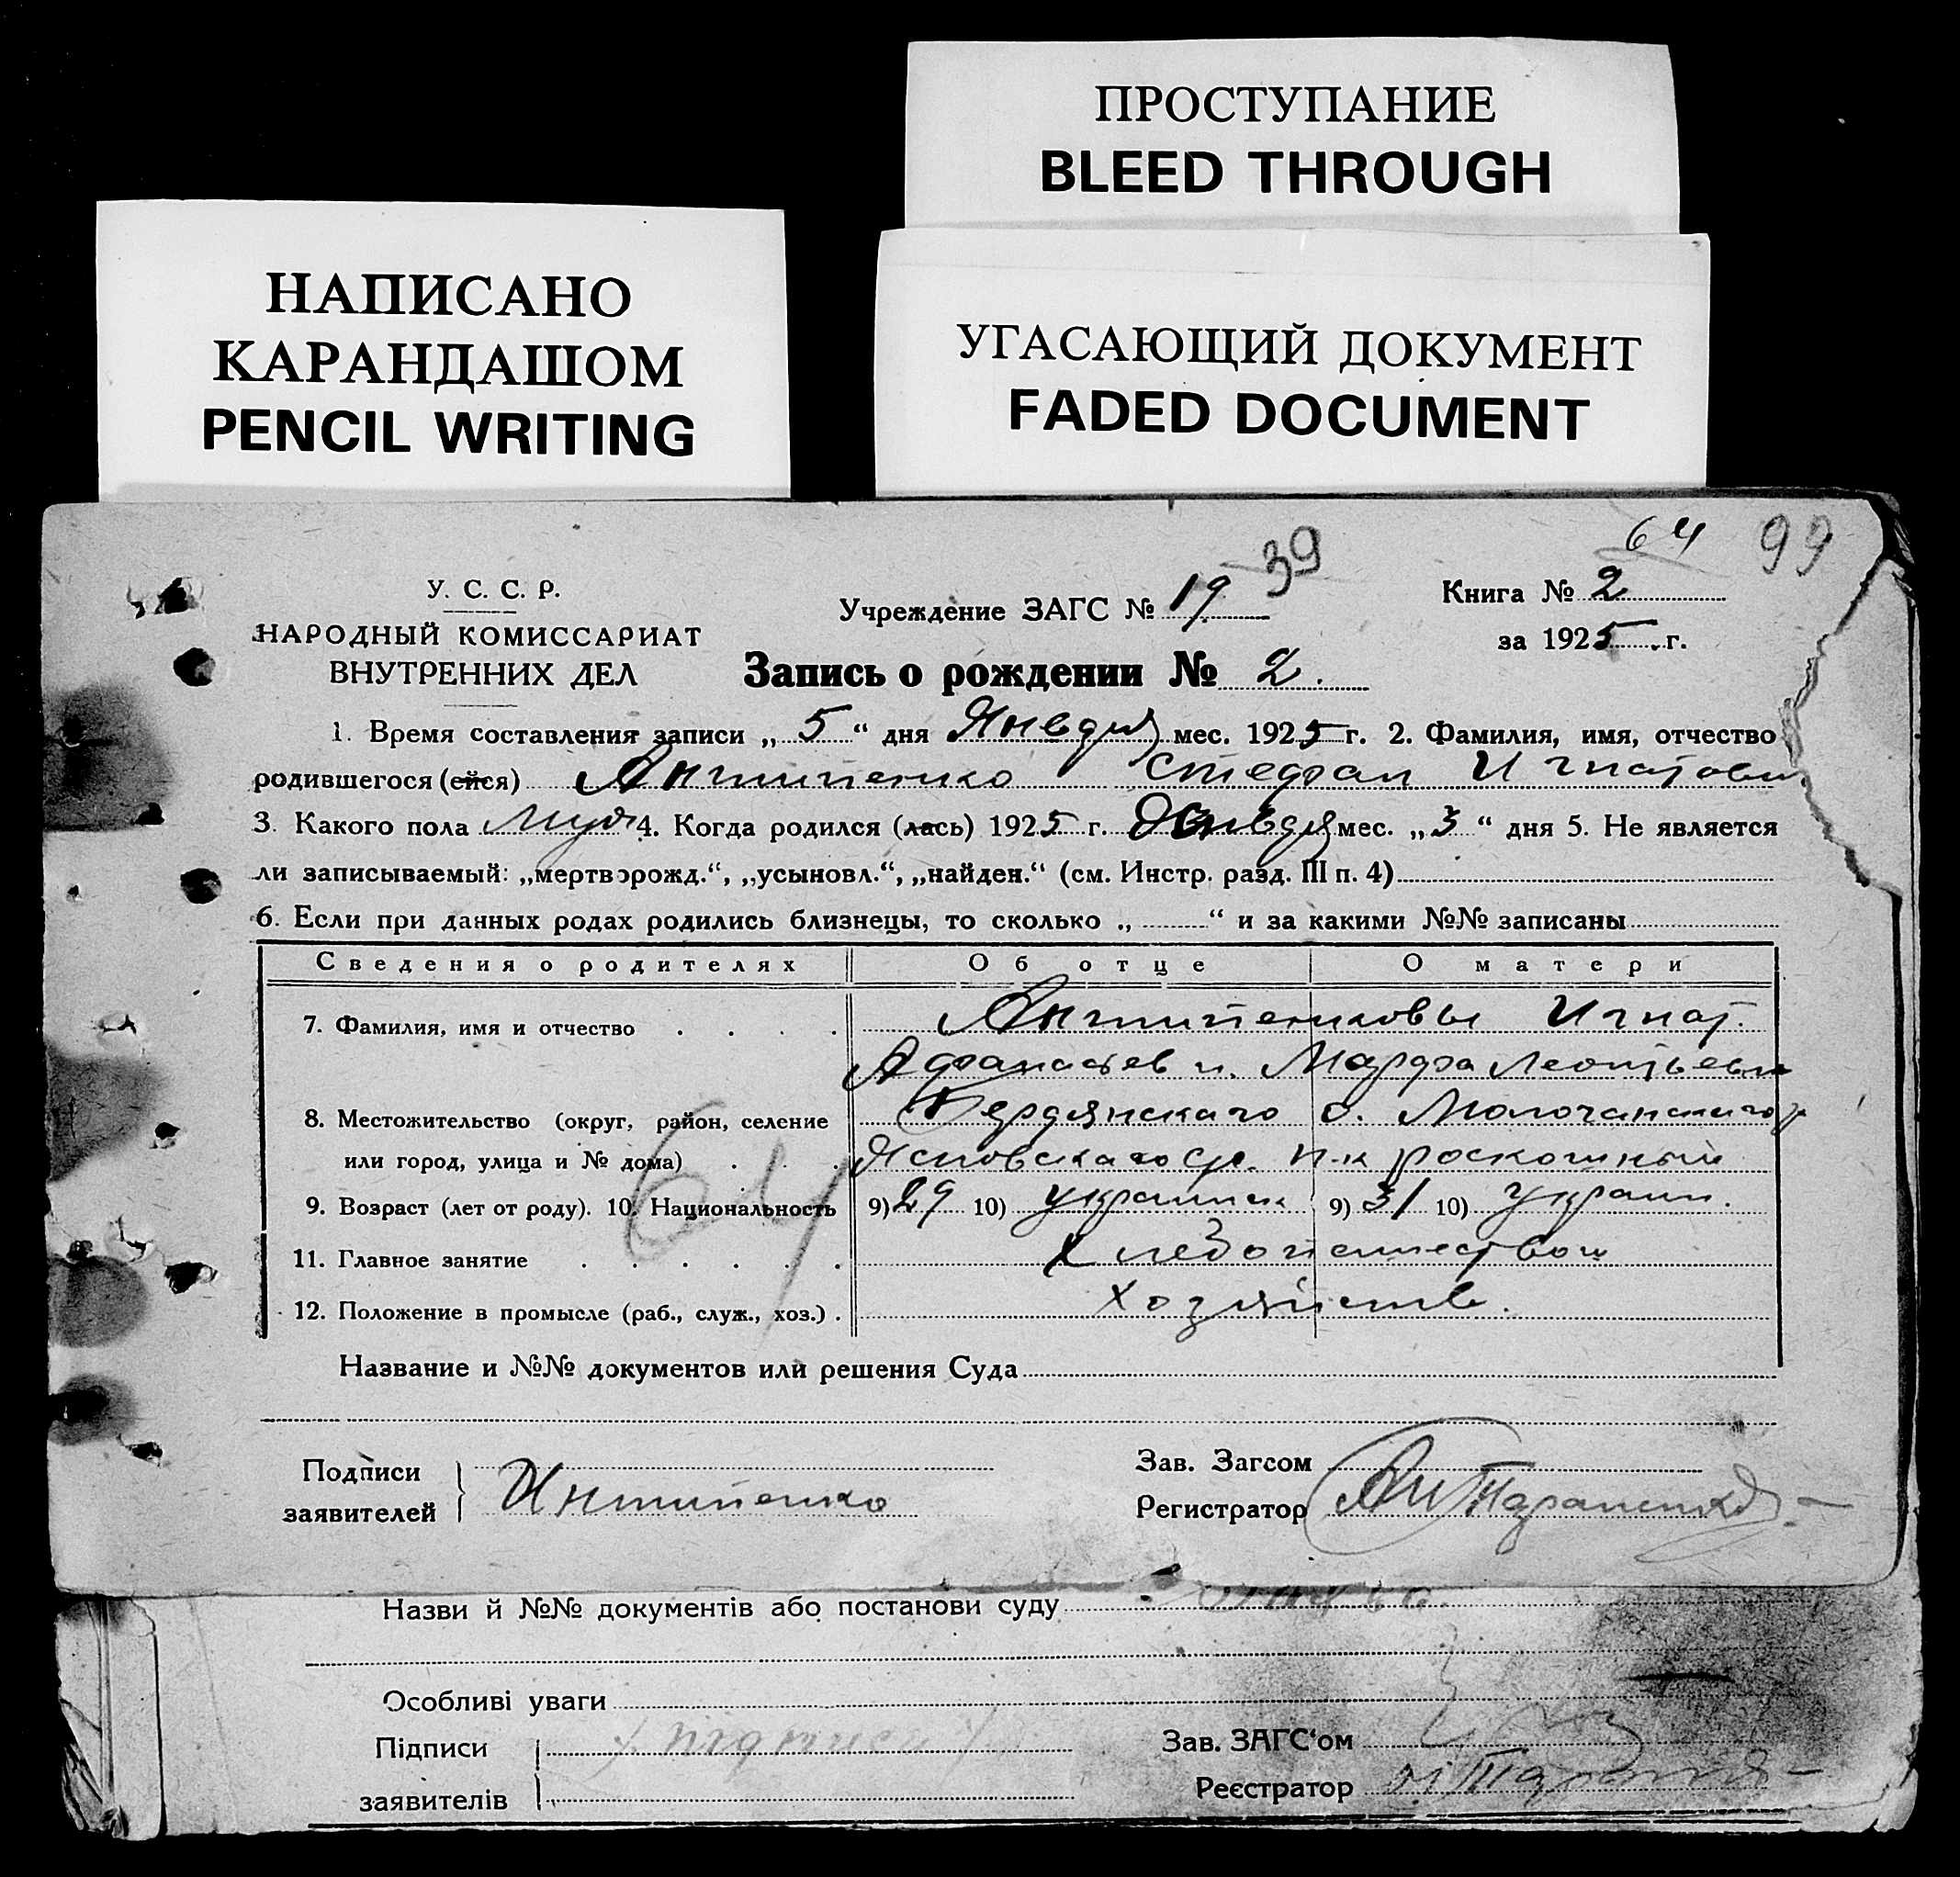 ПРОСТУПАНИЕ
BLEED THROUGH
НАПИСАНО
КАРАНДАШОМ
PENCIL WRITING
УГАСАЮЩИЙ ДОКУМЕНТ
FADED DOCUMENT
64 99
39
У. С. С. Р.
НАРОДНЫЙ КОМИССАРИАТ
ВНУТРЕННИХ ДЕЛ
Учреждение ЗАГС № 19
Книга № 2
за 1925 г.
Запись о рождении № 2.
1. Время составления записи „ 5 “ дня Января мес. 1925 г. 2. Фамилия, имя, отчество
родившегося (ейся) Антипенко Стефан Игнатович
3. Какого пола Муж 4. Когда родился (лась) 1925 г. Января мес. „ 3 “ дня 5. Не является
ли записываемый: „мертворожд.“, „усыновл.“, „найден.“ (см. Инстр. разд. III п. 4)
6. Если при данных родах родились близнецы, то сколько „ “ и за какими №№ записаны
Сведения о родителях Об отце О матери
7. Фамилия, имя и отчество Антипенковы Игнат.
Афанасьев и. Марфа Леонтьевн
8. Местожительство (округ, район, селение Бердянскаго о. Молочанскаго р
или город, улица и № дома) п-к роскошный
9. Возраст (лет от роду). 10. Национальность 9) 29 10) украинск 9) 31 10) украин.
64
11. Главное занятие Хлебопашеством
12. Положение в промысле (раб., служ., хоз.) Хозяйств.
Название и №№ документов или решения Суда
Подписи
заявителей Антипенко
Зав. Загсом
Регистратор Тараненко
Назви й №№ документів або постанови суду
Особливі уваги
Підписи
заявителів
Зав. ЗАГС‘ом
Реєстратор